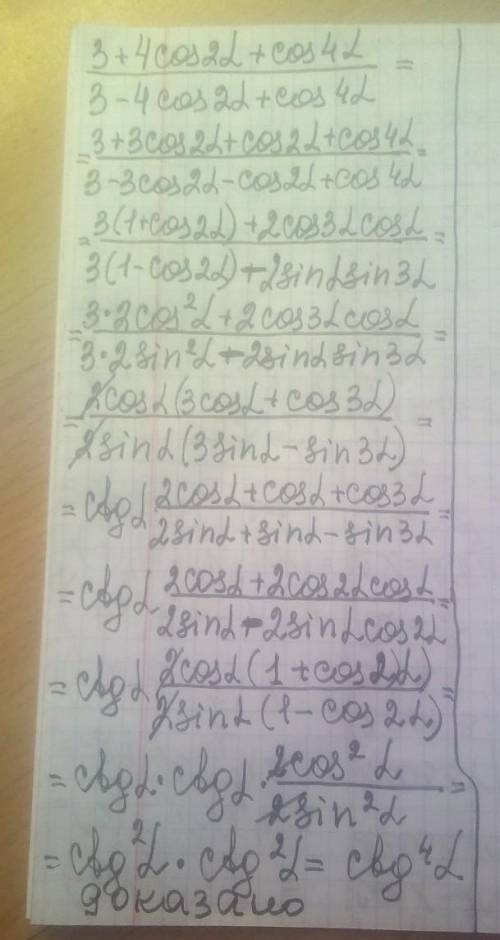 3+4cos2α+cos4α
=
3-4cos2α+cos4α
= 3+3cos2α+cos2α+cos4α =
3-3cos2α-cos2α+cos4α
= 3(1+cos2α)+2cos3αcosα =
3(1-cos2α)-2sinαsin3α
= 3·2cos²α+2cos3αcosα =
3·2sin²α-2sinαsin3α
= 2cosα(3cosα+cos3α) =
2sinα(3sinα-sin3α)
= ctgα 2cosα+cosα+cos3α =
2sinα+sinα-sin3α
= ctgα 2cosα+2cos2αcosα =
2sinα-2sinαcos2α
= ctgα 2cosα(1+cos2α) =
2sinα(1-cos2α)
= ctgα·ctgα· 2cos²α =
2sin²α
= ctg²α·ctg²α= ctg⁴α
доказано